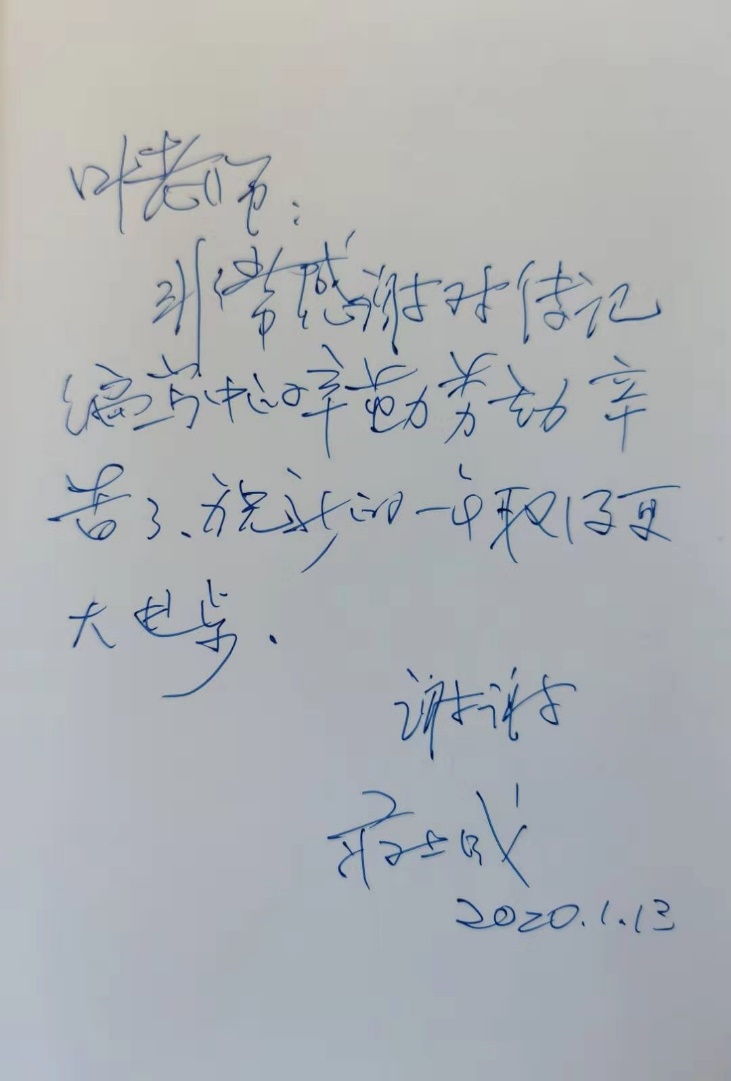 叶老师:
非常感谢对传记
编写中的辛勤劳动辛
苦了、祝新的一年取得更
大进步.
谢谢
2020.1.13